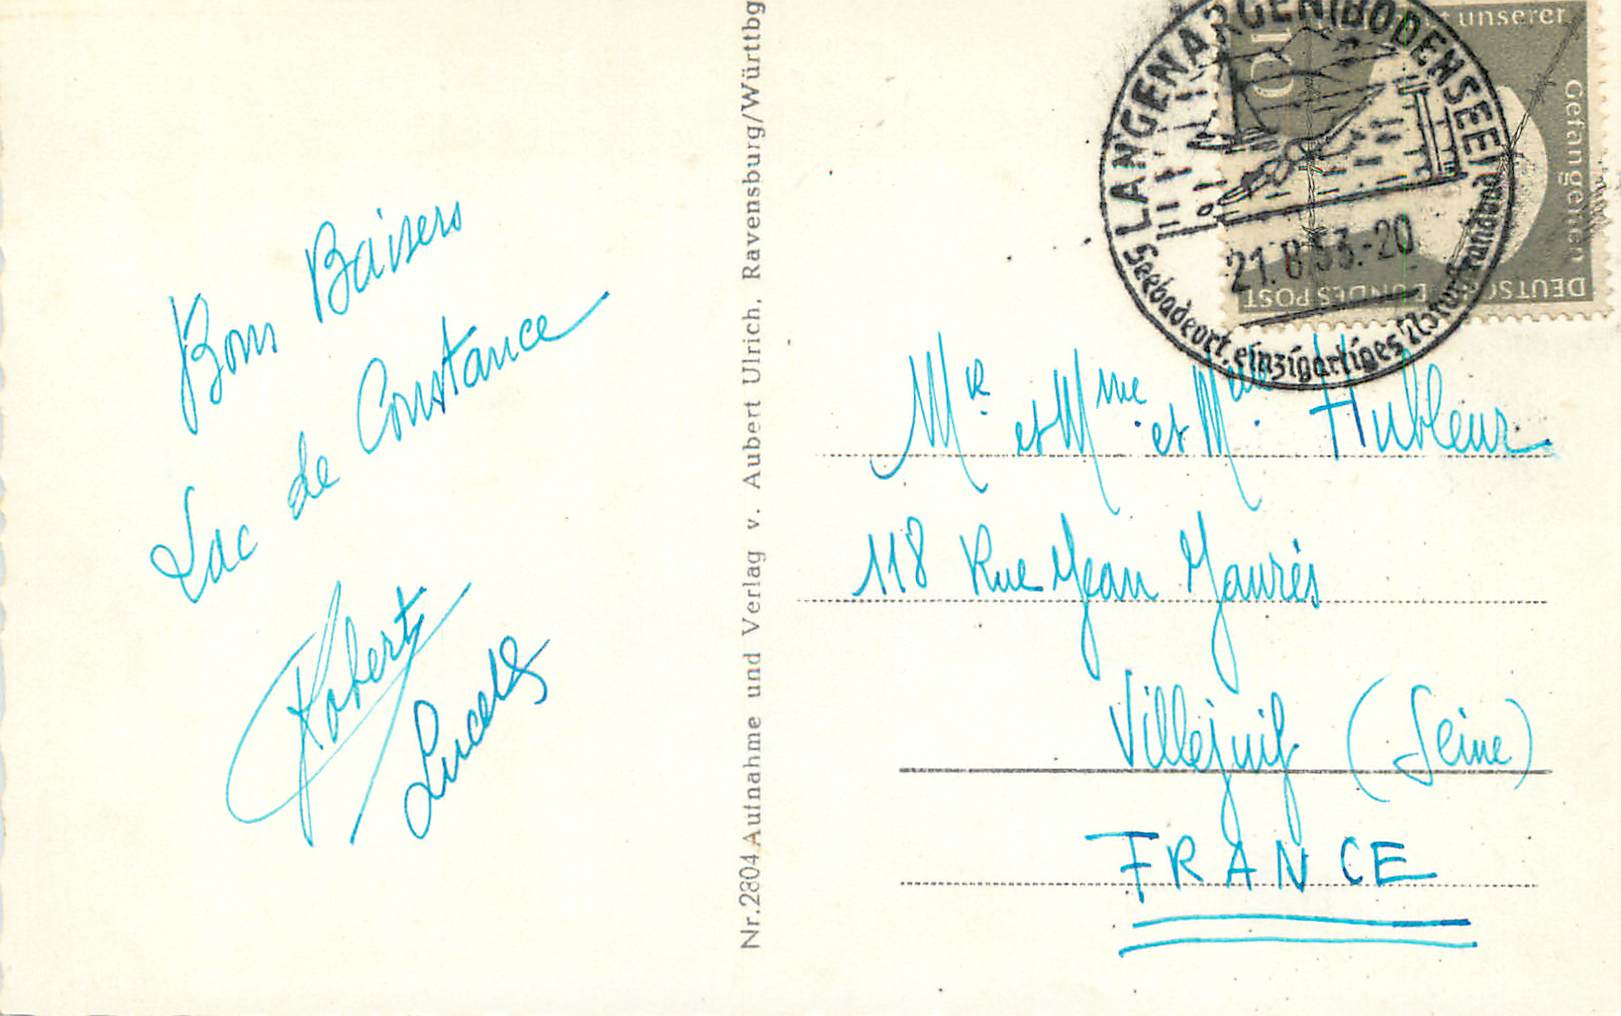 Bons Baisers
Lac de Constance
Robert
Nr.2804 Aufnahme und Verlag v. Aubert Ulrich, Ravensburg/Württbg
LANGENARGEN(BODENSEE)
21.8.53.-20
Seebadeort, einzigartiges Naturstrandbad
10
unserer
Gefangenen
DEUTSCHE BUNDESPOST
Mr et Mme et Mlle Hubleur
118 Rue Jean Jaurès
Villejuif (Seine)
FRANCE